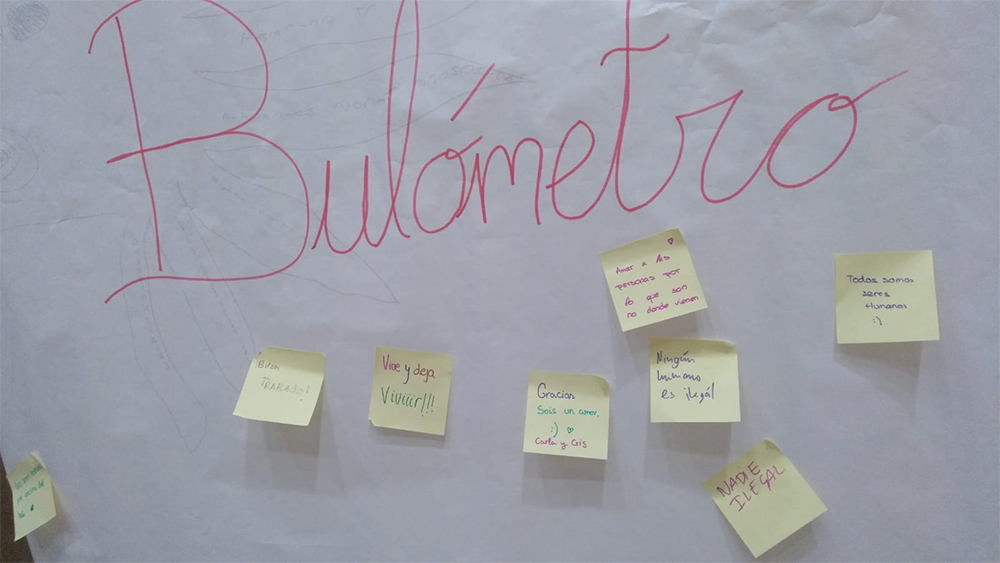 Bulómetro
Amar a las
personas por
lo que son
no donde vienen
Todos somos
seres
Humanos
:)
Buen
TRABAJO!
Vive y deja
Viviiir!!!
Gracias
Sois un amor.
:)
Carla y Cris
Ningún
humano
es ilegal
NADIE
ILEGAL